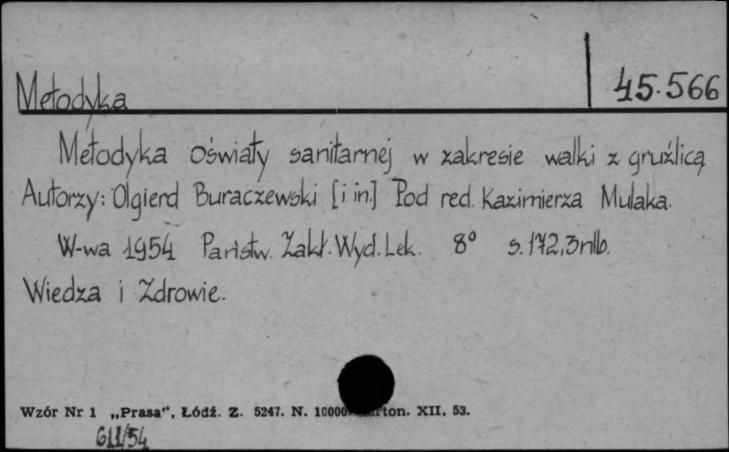 45.566
Metodyka
Metodyka oświaty sanitarnej w zakresie walki z gruźlicą
Autorzy: Olgierd Buraczewski [i in.] Pod red. Kazimierza Mulaka.
W-wa 1954 Państw. Zakł. Wyd. Lek. 8° s. 172, 3 nlb.
Wiedza i Zdrowie.
Wzór Nr 1 „Prasa", Łódź. Z. 5247. N. 10000. XII, 53.
611/54